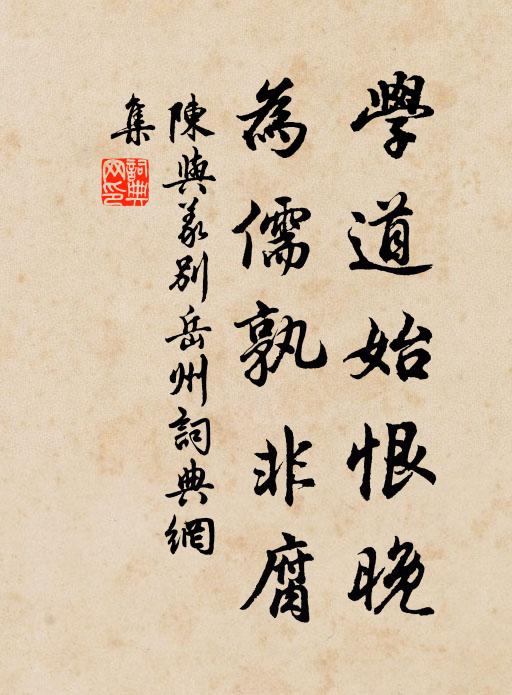 學道始恨晚
為儒孰非腐
陳與義別岳州詞典網
集
詞典
网印